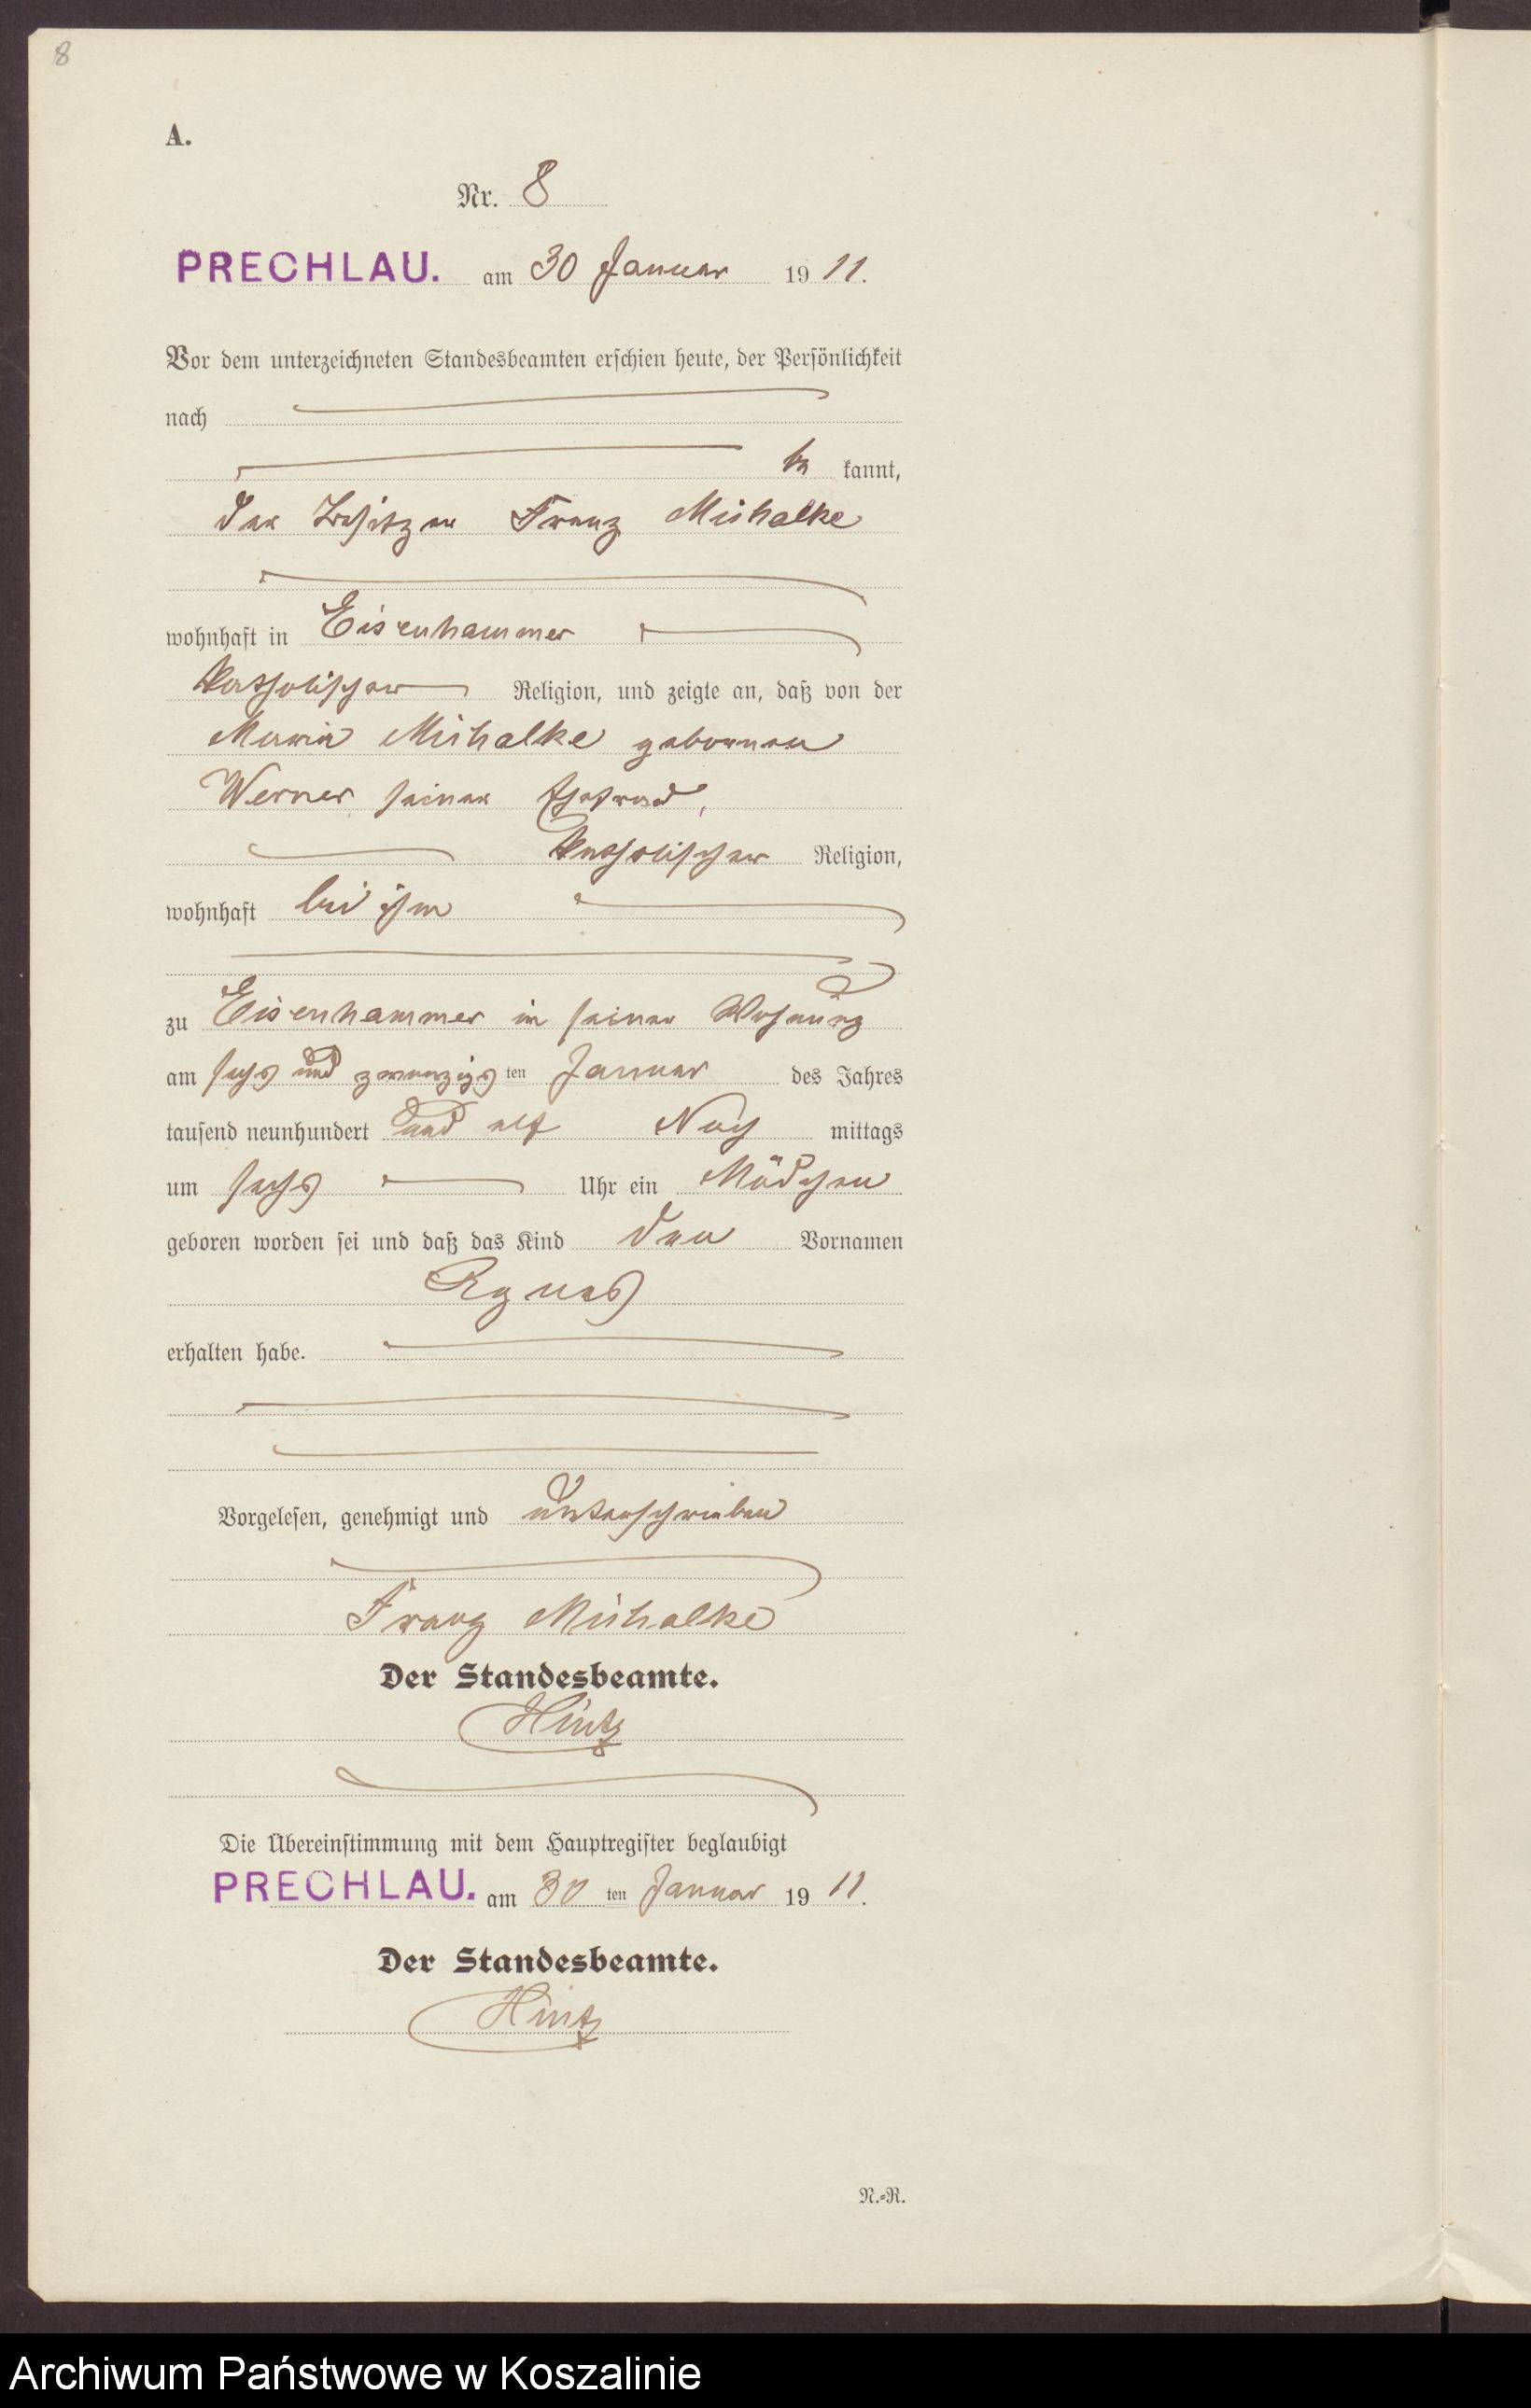 8
A.
Nr. 8
PRECHLAU. am 30 Januar 1911.
Vor dem unterzeichneten Standesbeamten erschien heute, der Persönlichkeit
nach
be kannt,
der Besitzer Franz Mishalke
wohnhaft in Eisenhammer
katholischer Religion, und zeigte an, daß von der
Maria Mishalke geborenen
Werner seiner Ehefrau,
katholischer Religion,
wohnhaft bei ihm
zu Eisenhammer in seiner Wohnung
am sechs und zwanzigs ten Januar des Jahres
tausend neunhundert und elf Nach mittags
um sechs Uhr ein Mädchen
geboren worden sei und daß das Kind den Vornamen
Agnes
erhalten habe.
Vorgelesen, genehmigt und unterschrieben
Franz Mishalke
Der Standesbeamte.
Hintz
Die Übereinstimmung mit dem Hauptregister beglaubigt
PRECHLAU. am 30 ten Januar 1911.
Der Standesbeamte.
Hintz
N.=R.
Archiwum Państwowe w Koszalinie